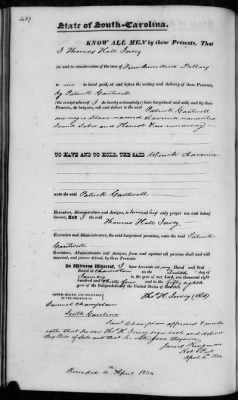 State of South-Carolina.
KNOW ALL MEN by these Presents, That
I Thomas Hall Jervey
for and in consideration of the sum of Five hundred Dollars
to me in hand paid, at and before the sealing and delivery of these Presents,
by Patrick Cantwell
the receipt whereof I do hereby acknowledge) have bargained and sold, and by these
Presents, do bargain, sell and deliver to the said Patrick Cantwell
one negro slave named Lavinia warranted
Sound Sober and Honest & no runaway
TO HAVE AND TO HOLD, THE SAID Wench Lavinia
unto the said Patrick Cantwell
Executors, Administrators and Assigns, to his and their only proper use and behoof,
forever. And I the said Thomas Hall Jervey
Executors, Administrators, the said bargained premises, unto the said Patrick
Cantwell
Executors, Administrators and Assigns, from and against all persons shall and will
warrant, and forever defend, by these Presents.
In Witness Whereof, I have hereunto set my Hand and Seal
Dated at Charleston on the
January in the year of our Lord, one thousand eight
hundred and thirty four and in the fifty eighth
year of the Independence of the United States of America.
SIGNED, SEALED, AND DELIVERED
IN THE PRESENCE OF
Th. H. Jervey (LS)
Samuel Champlain
South Carolina
Saml Champlain appeared & made
oath that he saw Th. H. Jervey sign seal and deliver
this Bill of Sale and that he
James
Not Pub
April 4 1834
Recorded 4th April 1834